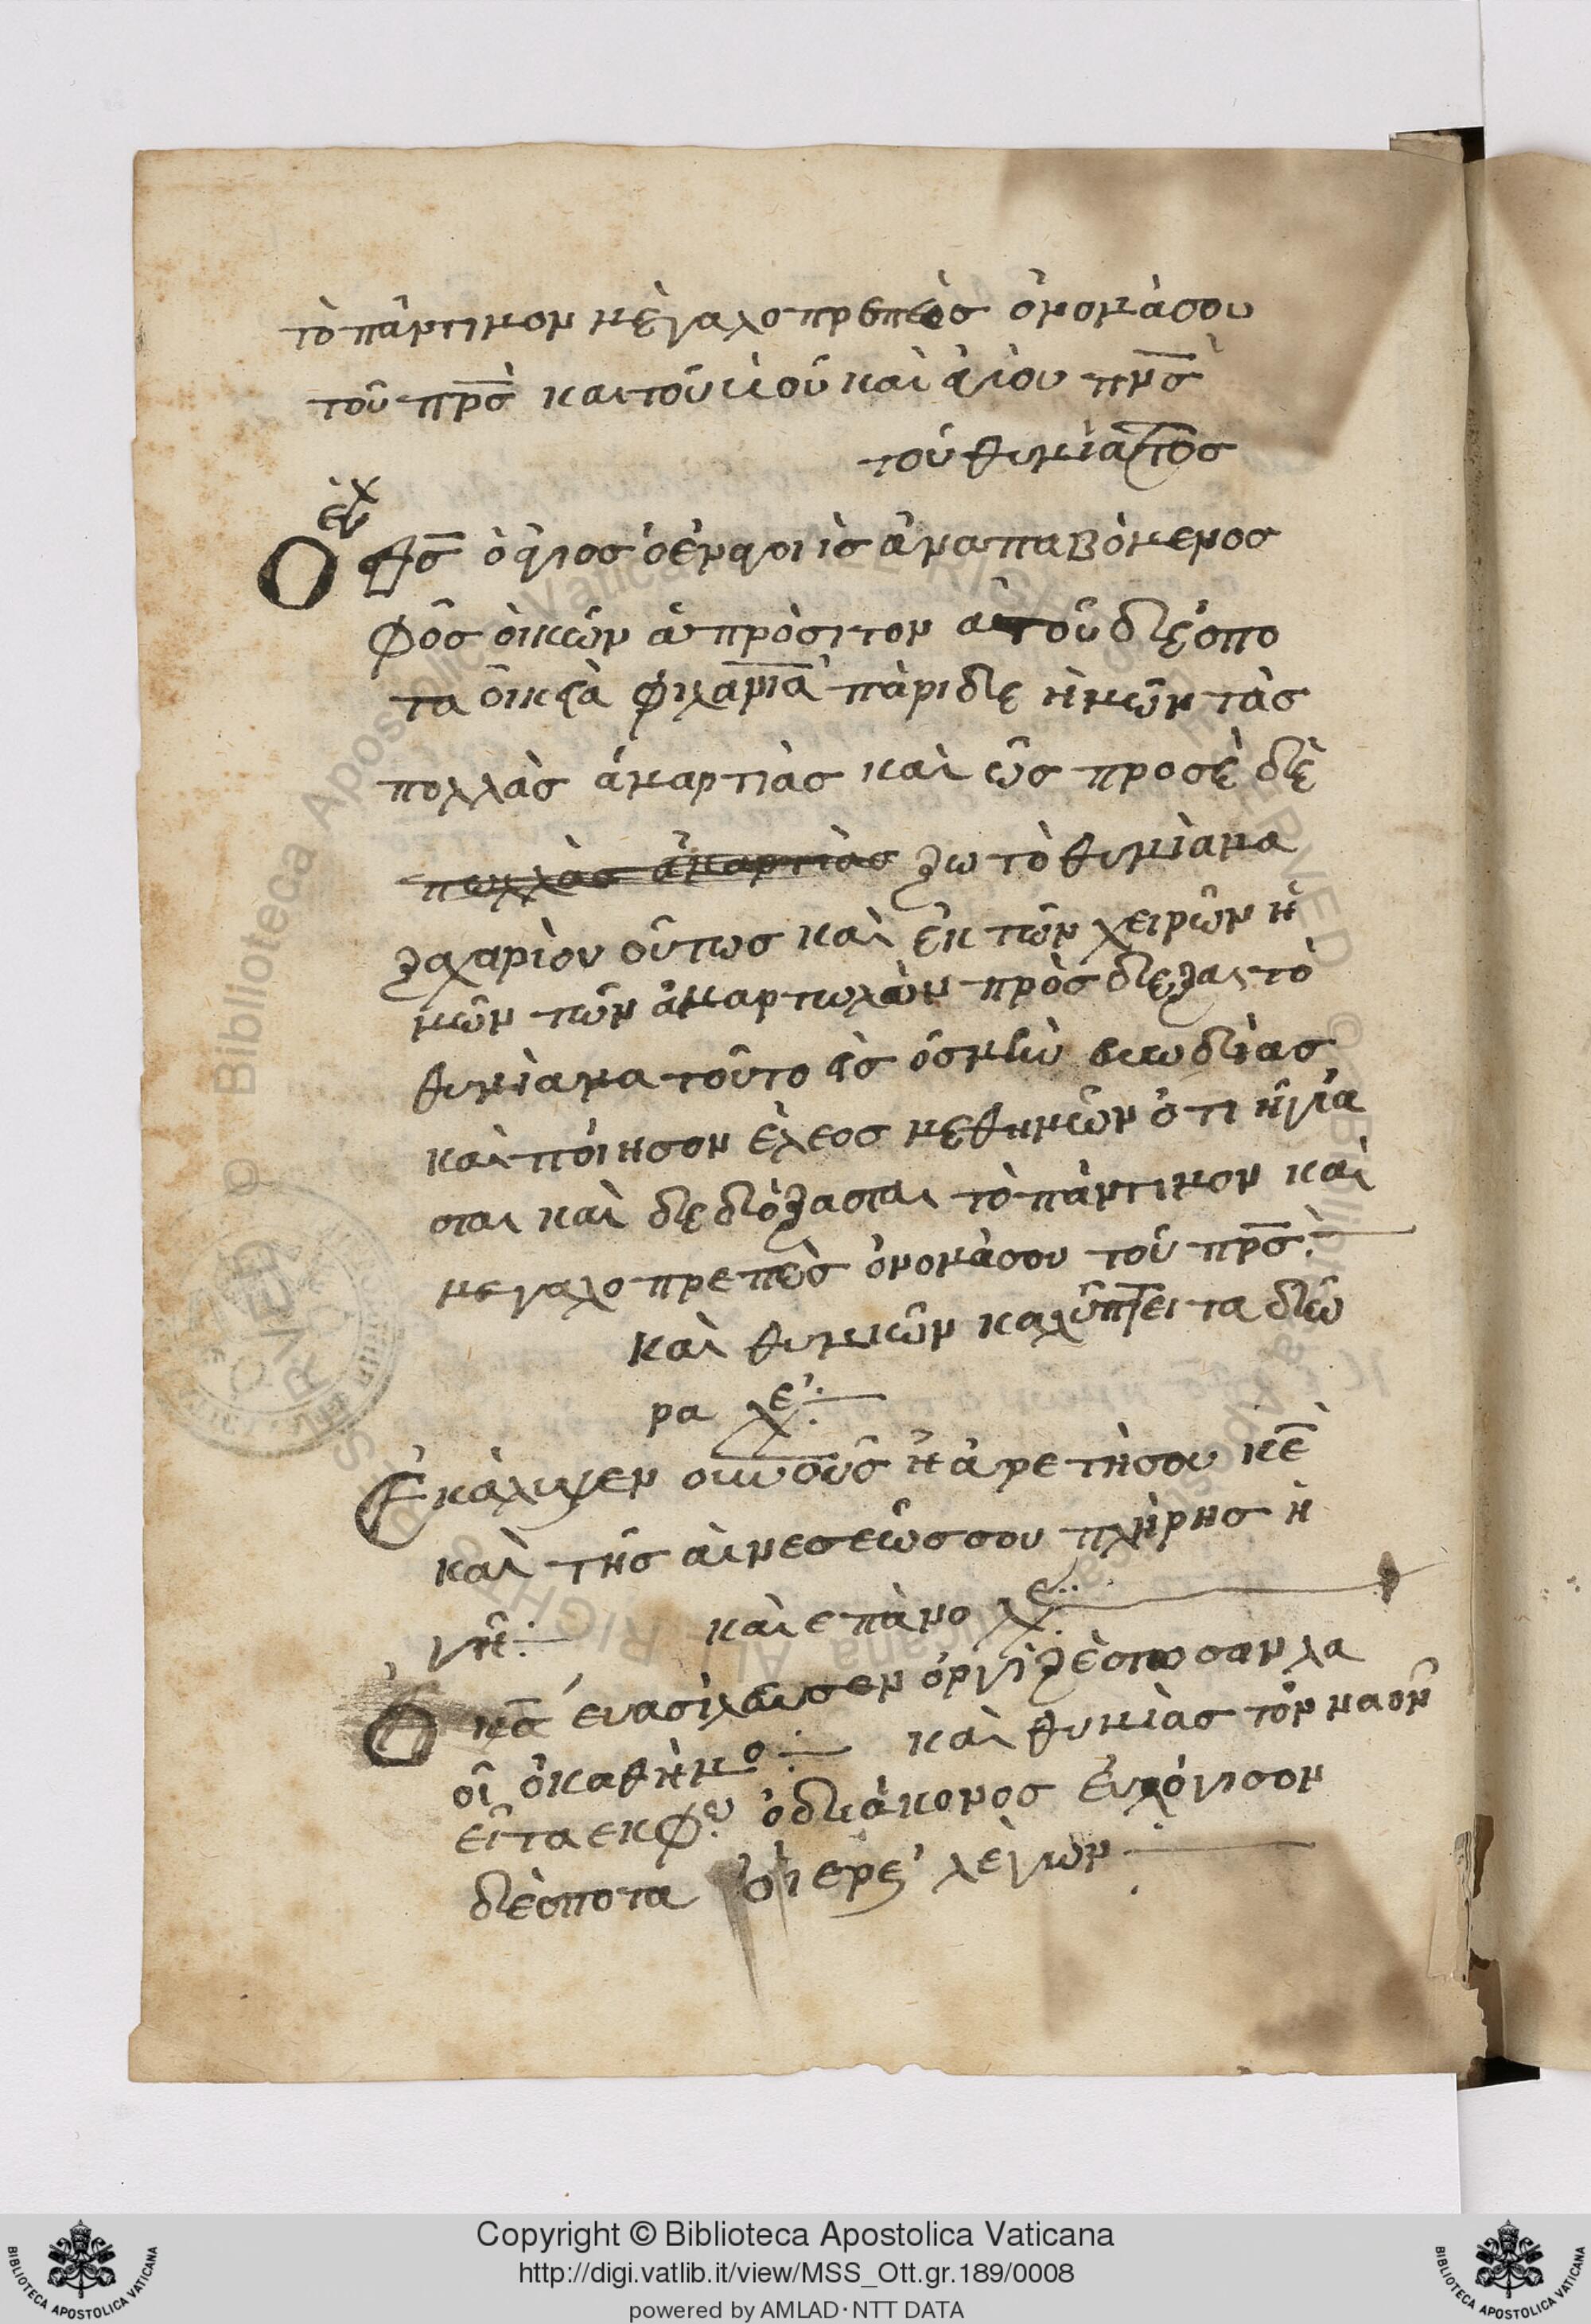 τὸ πάντιμον μὲγαλοπρεπὲς ὀνομὰσου
τοῦ πρ̅ς̀ και τοῦ υἱοῦ καὶ ἁγίου πν̅ς̀
τοῦ θυμιάτος
εὐχ
Ὁ θ̅ς ὁ ἅγιος ὁ ἐν αγοιὶς ἀναπαβὸμενος
φῶς ὀικῶν ἀπρὸσιτον αὐτοῦ δὲσπο
τα οἰκεὰ φιλαν̅ι̅α πὰριδε ἡμῶν τὰς
πολλὰς ἁμαρτιὰς καὶ ὡς προσὲδὲ
πωλλὰς ἁμαρτιὰς ξω τὸ θυμὶαμα
ζαχαρὶου οὕτως καὶ ἐκ τῶν χειρῶν ἡ
μῶν τῶν ἁμαρτωλῶν πρὸσδεξαι τὸ
θυμὶαμα τοῦτο εἰς ὀσμὴν εὐωδὶας
καὶ ποίησον ἐλεος μεθημῶν ὁτι ἡγία
σται καὶ δεδὸξασται τὸ πὰντιμον καὶ
μεγαλοπρεπὲς ὀνομὰσου τοῦ πρ̅ς̀:
καὶ θυμιῶν καλύπτει τα δῶ
ρα λέ:
Ἐκὰλυψεν οὐνοῦς ἡ ἀρετὴσου κ̅ὲ
καὶ τῆς αἰνεσεώς σου πλὴρης ἡ
γῆ: καὶ επὰνο λέ:
Ὁ κ̅ς ἐυασὶλευσεν ὀργιζὲσπωσαν λα
οῖ ὁ καθὴμο: καὶ θυμιὰς τὸν ναὸν
εἶτα εκφω ὁ διὰκονος ἐυλόγισον
δὲσποτα ὁ ιερε λὲγων
Copyright © Biblioteca Apostolica Vaticana
http://digi.vatlib.it/view/MSS_Ott.gr.189/0008
powered by AMLAD·NTT DATA
BIBLIOTECA APOSTOLICA VATICANA
BIBLIOTECA APOSTOLICA VATICANA